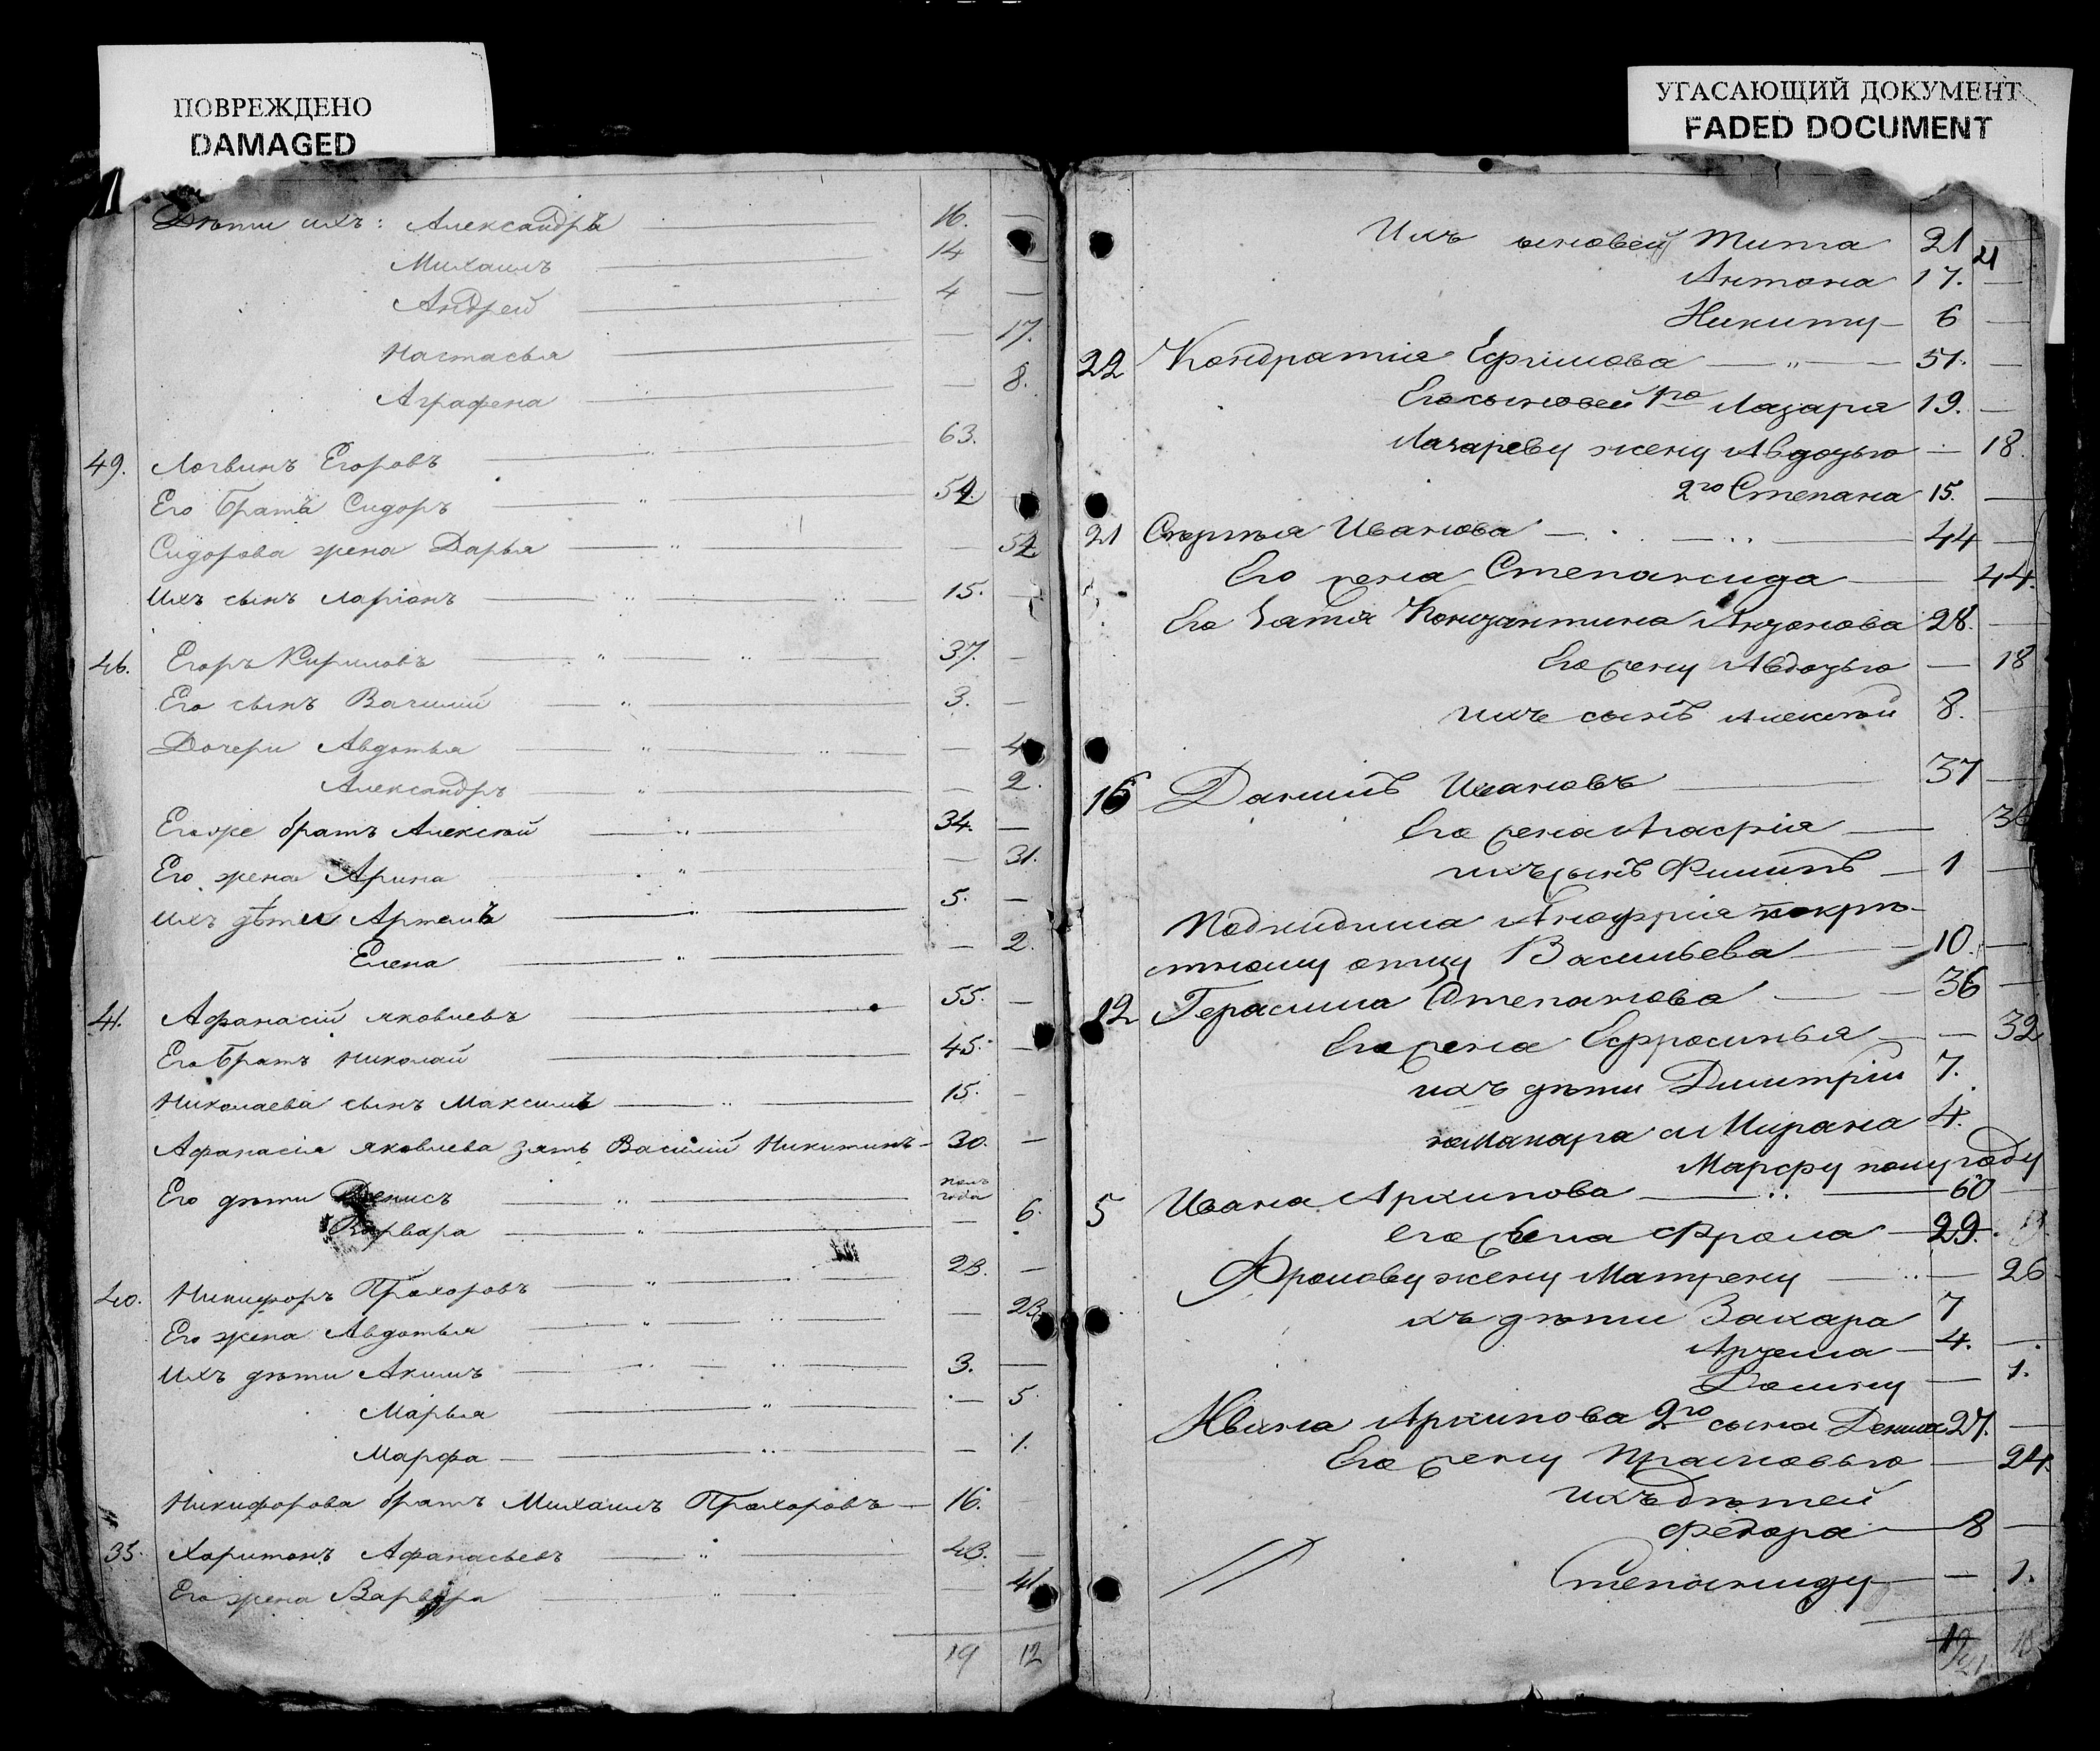 ПОВРЕЖДЕНО
DAMAGED
Дѣти ихъ: Александръ 16. —
Михаилъ 14
Андрей 4 —
Настасья — 17.
Аграфена — 8.
49. Логвинъ Егоровъ 63.
Его братъ Сидоръ 52.
Сидорова жена Дарья — 52
Ихъ сынъ Ларіонъ 15. —
46. Егоръ Кириловъ 37. —
Его сынъ Василій 3. —
Дочери Авдотья — 4
Александръ — 2.
Егоже братъ Алексѣй 34. —
Его жена Арина — 31.
Ихъ дѣти Артемъ 5. —
Елена — 2.
41. Афанасій Яковлевъ 55. —
Его братъ Николай 45. —
Николаева сынъ Максимъ 15. —
Афанасія Яковлева зять Василій Никитинъ — 30. —
Его дѣти Денисъ полъ года
Варвара — 6.
40. Никифоръ Прохоровъ 28. —
Его жена Авдотья — 28.
Ихъ дѣти Акимъ 3. —
Марья — 5
Марфа — 1.
Никифорова братъ Михаилъ Прохоровъ — 16.
35. Харитонъ Афанасьевъ 43. —
Его жена Варвара — 41
19 12
УГАСАЮЩИЙ ДОКУМЕНТ
FADED DOCUMENT
21
Ихъ сыновей Тита 21 —
Антона 17. —
Никиту — 6 —
22 Кондратія Ефимова — 51. —
Его сыновей 1го Лазаря 19. —
Лазареву жену Авдотью — 18.
2го Степана 15. —
21 Сергѣя Иванова — 44 —
Его жена Степанида — 44.
Его зятя Константина Антонова 28. —
Его жену Авдотью — 18
ихъ сынъ Алексѣй 8. —
16 Данилъ Ивановъ 37 —
Его жена Агафія — 36
ихъ сынъ Филипъ — 1 —
Подкидыша Ануфрія по кре-
тному отцу Васильева — 10. —
12 Герасима Степанова — 36 —
Его жена Ефросинья — 32
ихъ дѣти Димитрій 7.
Макара 4.
Марфу полугоду
5 Ивана Архипова — 60 —
Его сына Фрола — 29.
Фролову жену Матрену — 26
ихъ дѣти Захара 7
Артема — 4. —
Домну — 1.
Ивана Архипова 2го сына Дениса 27. —
Его жену Прасковью — 24.
ихъ дѣтей
Федора — 8 —
Степаниду — 1.